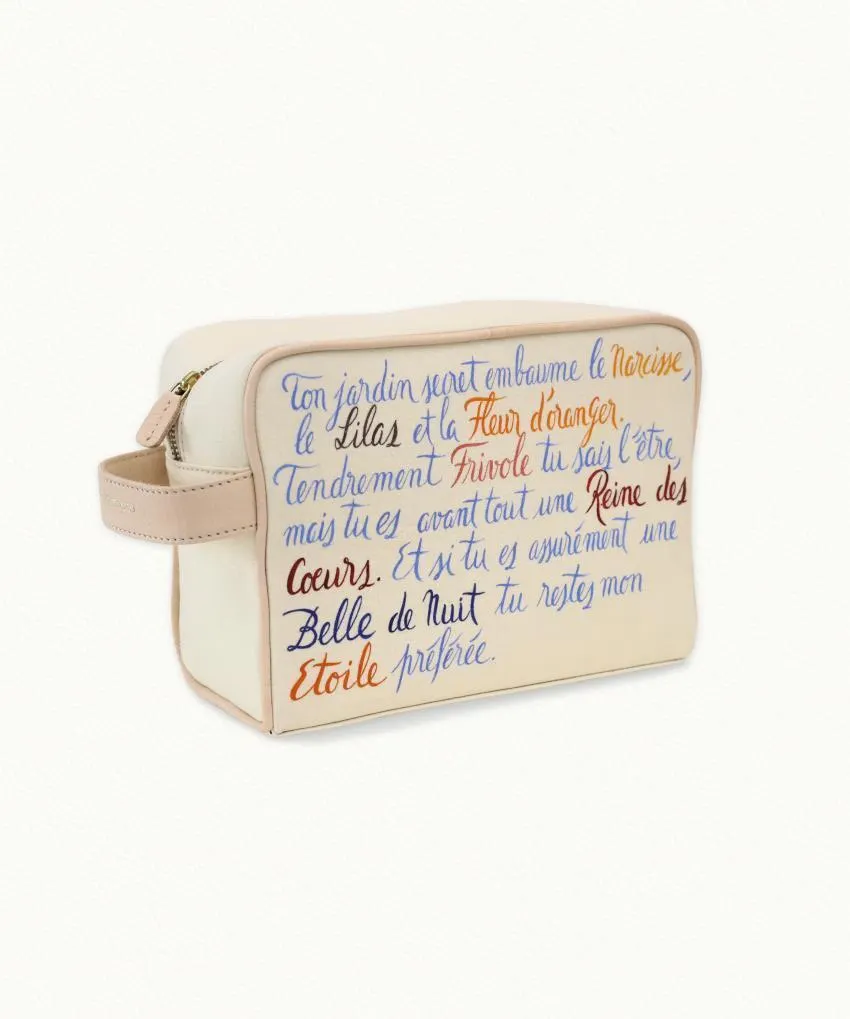 Ton jardin secret embaume le Narcisse,
le Lilas et la Fleur d'oranger.
Tendrement Frivole tu sais l'être,
mais tu es avant tout une Reine des
Cœurs. Et si tu es assurément une
Belle de Nuit tu restes mon
Etoile préférée.